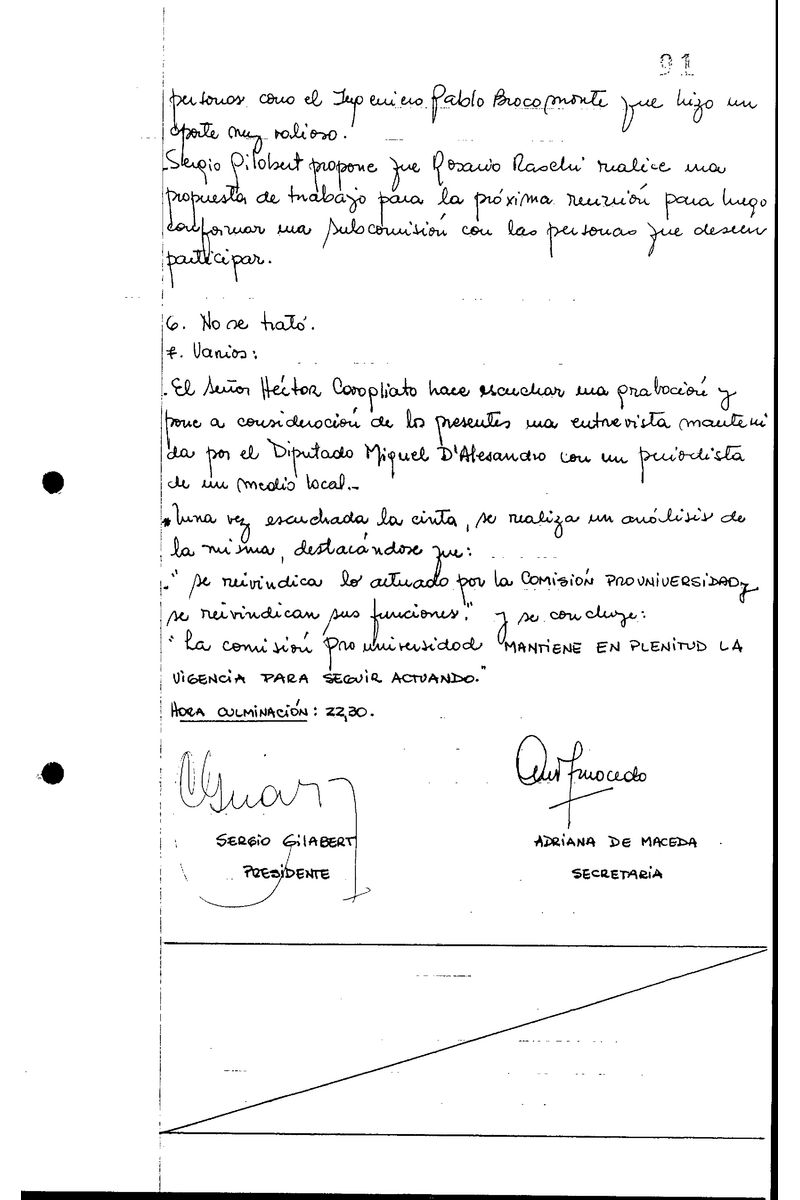 91
personas como el Ingeniero Pablo Brocamonte que hizo un
aporte muy valioso.
.Sergio Gilabert propone que Rosario Raschi realice una
propuesta de trabajo para la próxima reunión para luego
conformar una subcomisión con las personas que deseen
participar.
6. No se trató.
7. Varios:
.El Señor Héctor Coropliato hace escuchar una grabación y
pone a consideración de los presentes una entrevista manteni
da por el Diputado Miguel D'Alesandro con un periodista
de un medio local.-
.Una vez escuchada la cinta, se realiza un análisis de
la misma, destacándose que:
." se reivindica lo actuado por la COMISIÓN PROUNIVERSIDAD y
se reivindican sus funciones." y se concluye:
" La comisión Pro universidad MANTIENE EN PLENITUD LA
VIGENCIA PARA SEGUIR ACTUANDO."
HORA CULMINACIÓN: 22,30.
SERGIO GILABERT
ADRIANA DE MACEDA
PRESIDENTE
SECRETARIA